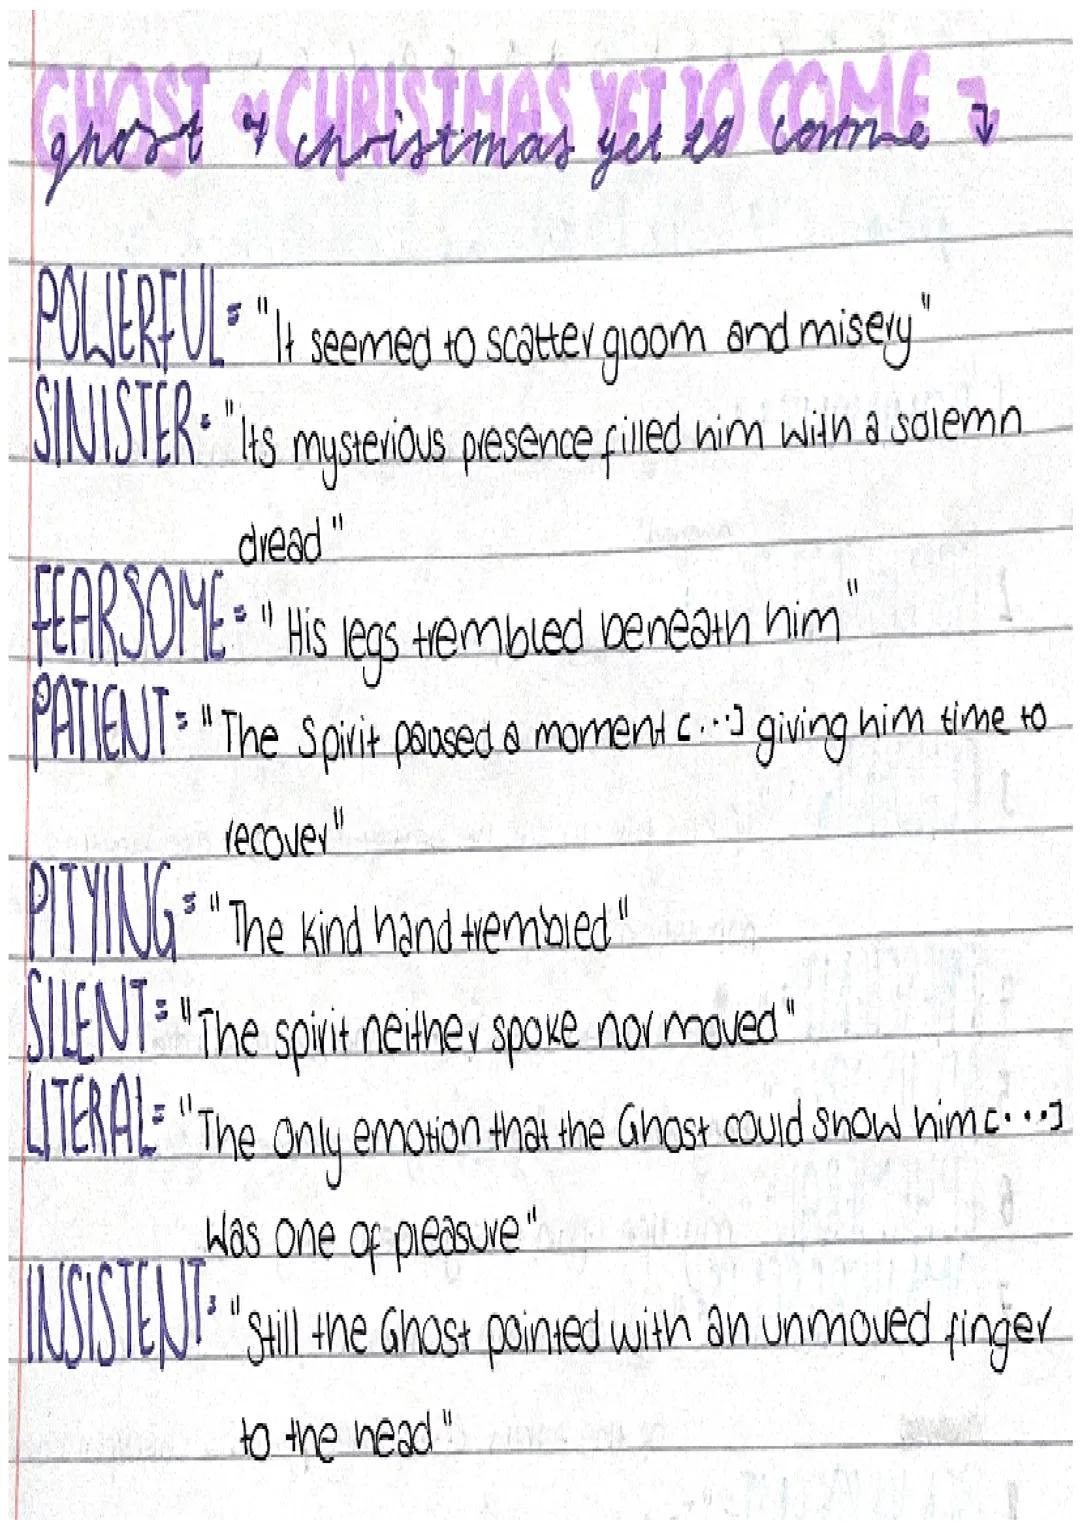 GHOST of CHRISTMAS YET TO COME
ghost of christmas yet to come ↓
POWERFUL= "It seemed to scatter gloom and misery"
SINISTER= "Its mysterious presence filled him with a solemn
dread"
FEARSOME= "His legs trembled beneath him"
PATIENT= "The Spirit paused a moment [...] giving him time to
recover"
PITYING= "The kind hand trembled"
SILENT= "The spirit neither spoke nor moved"
LITERAL= "The only emotion that the Ghost could show him [...]
was one of pleasure"
INSISTENT= "Still the Ghost pointed with an unmoved finger
to the head"